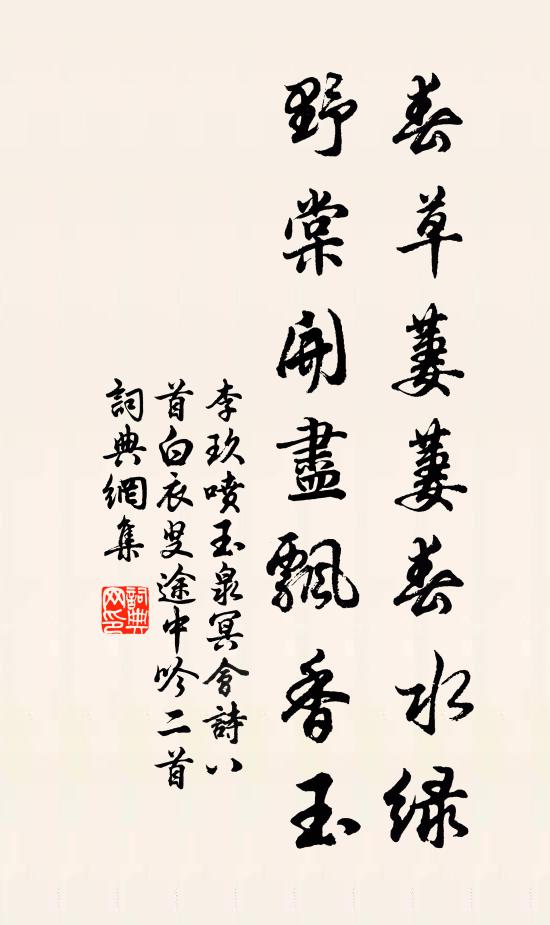 春草萋萋春水绿
野棠開盡飄香玉
李玖噴玉泉冥會詩八
首白衣叟途中吟二首
詞典網集
詞典
网印